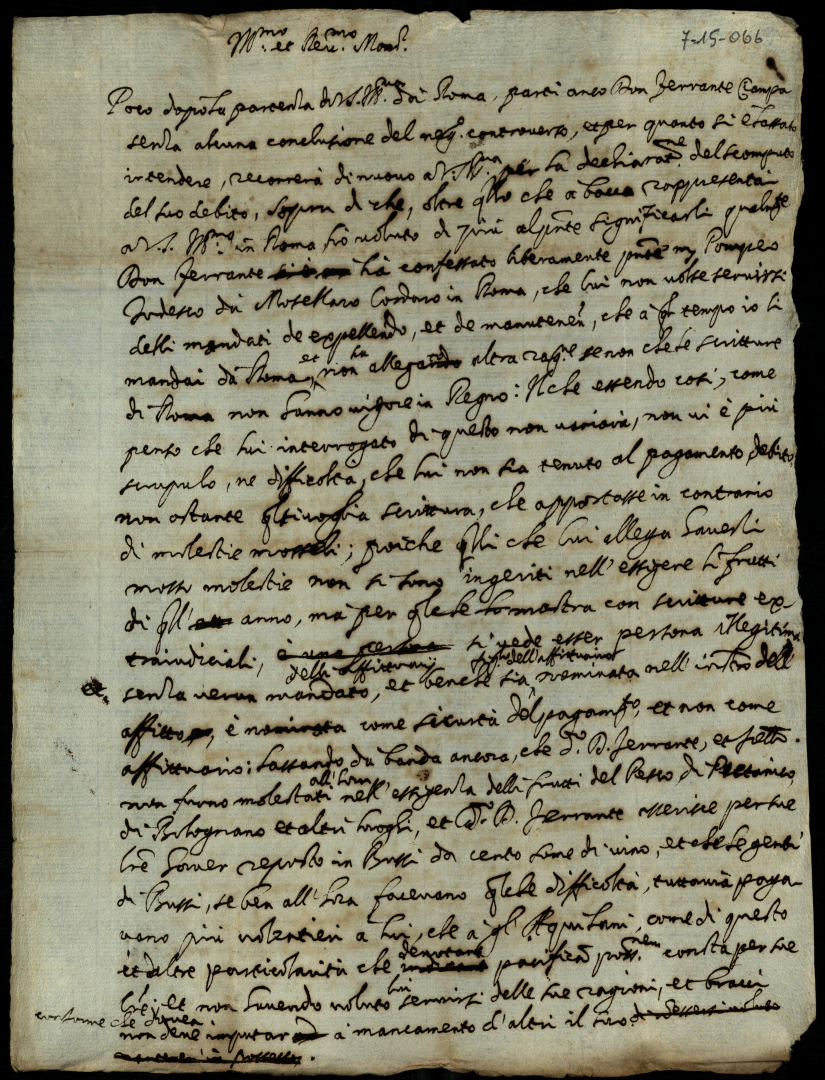 7-15-066
Ill.mo et Rev.mo Mons.r
Poco dopo la partenza di V.S. Ill.ma da Roma, parti anco Don Ferrante Ciampa
senza alcuna conclusione del neg.o controverso, et per quanto si è lassato
intendere, recorrerà di nuovo a V.S. Ill.ma per la dechiarat.ne del scomputo
del suo debito, sopra di che, oltre q.llo che a bocca rappresentai
a V.S. Ill.ma in Roma, hò voluto di più al p.nte significarli qualm.te
Don Ferrante hà confessato liberamente p.nte m. Pompeo
Todesco da Mosellaro Cordaro in Roma, che lui non volse servirsi
delli mandati de expellendo, et de manutenen.o, che à q.l tempo io li
mandai da Roma, et non ha allegando altra rag.ne se non che le scritture
di Roma non hanno vigore in Regno: Il che essendo così, come
penso che lui interrogato di questo non variarà, non vi è più
scrupulo, ne difficoltà, che lui non sia tenuto al pagamento debito,
non ostante q.lsivoglia scrittura, che apportasse in contrario
di molestie mosseli; poiche q.lli che lui allega haverli
mosso molestie non si sono ingeriti nell'essigere li frutti
di q.ll' anno, mà per q.lche lo mostra con scritture ex-
traiudiciali, è una persona si vede esser persona illegitima
delli affittuarij dell'affittuario
senza verun mandato, et benche sia nominata nell'instro dell'
affitto, è nominata come sicurtà del pagam.to, et non come
affittuario: lassando da banda ancora, che d.o D. Ferrante, et
all'hora
non furno molestati nell'essigenza delli frutti del Resto, di
di Bolognano et altri luoghi, et d.o D. Ferrante asserisce per sue
l.re haver reposto in Bussi da cento some di vino, et che le genti
di Bussi, se ben all'hora facevano q.lche difficoltà, tuttavia paga-
vano più volentieri a lui, che à gl'Aquilani, come di questo
denotano
et altre particolarità che indicano pacifica poss.ne consta per sue
l.re; et non havendo lui voluto servirsi delle sue ragioni, et bracci
non deve imputar à mancamento d'altri il suo
mantener in possesso.